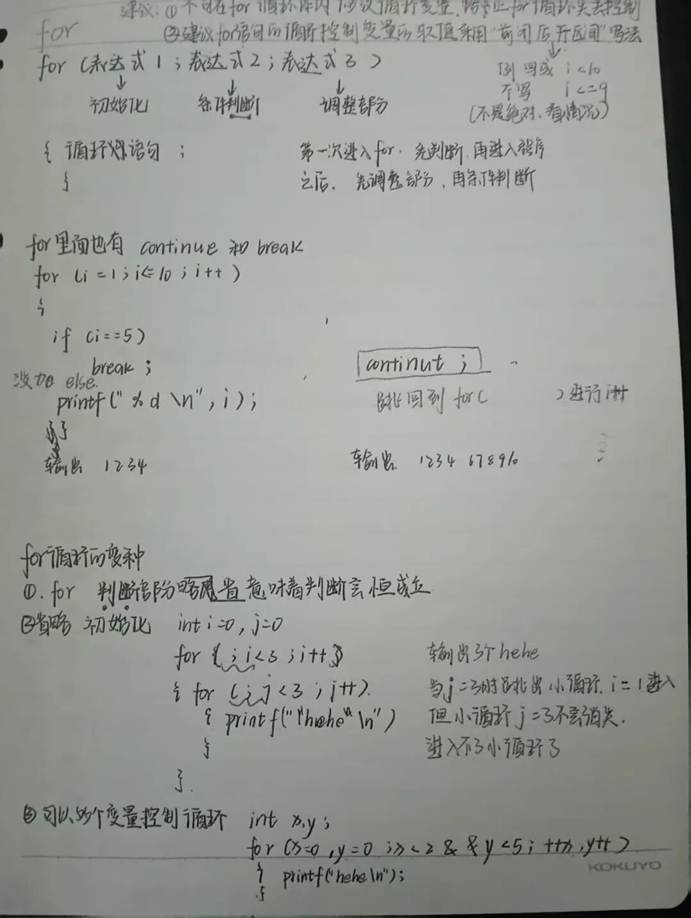 建议: ① 不可在for循环体内修改循环变量, 防止for循环失去控制
for ②建议for语句的循环控制变量的取值采用"前闭后开区间"写法
for (表达式1; 表达式2; 表达式3)
例 写成 i<10
初始化 条件判断 调整部分
不写 i<=9
(不是绝对, 看情况)
{ 循环语句 ;
第一次进入for. 先判断, 再进入程序
}
之后, 先调整部分, 再条件判断
for里面也有 continue 和 break
for (i=1; i<=10; i++)
{
if (i==5)
break;
continut ;
没加 else.
printf("%d\n", i);
跳回到for( )进行i++
}
输出 1234
输出 1234 678910
for循环的变种
①. for 判断部分省略意味着判断会恒成立
②省略 初始化 int i=0, j=0
for (; i<3; i++)
输出3个hehe
{ for (; j<3; j++)
当j=3时跳出小循环. i=1进入
{ printf("hehe\n")
但小循环j=3不会消失.
}
进入不了小循环了
}.
③可以多个变量控制循环 int x,y;
for (x=0, y=0; x<2 && y<5; ++x, y++)
KOKUYO
{ printf("hehe\n");
}